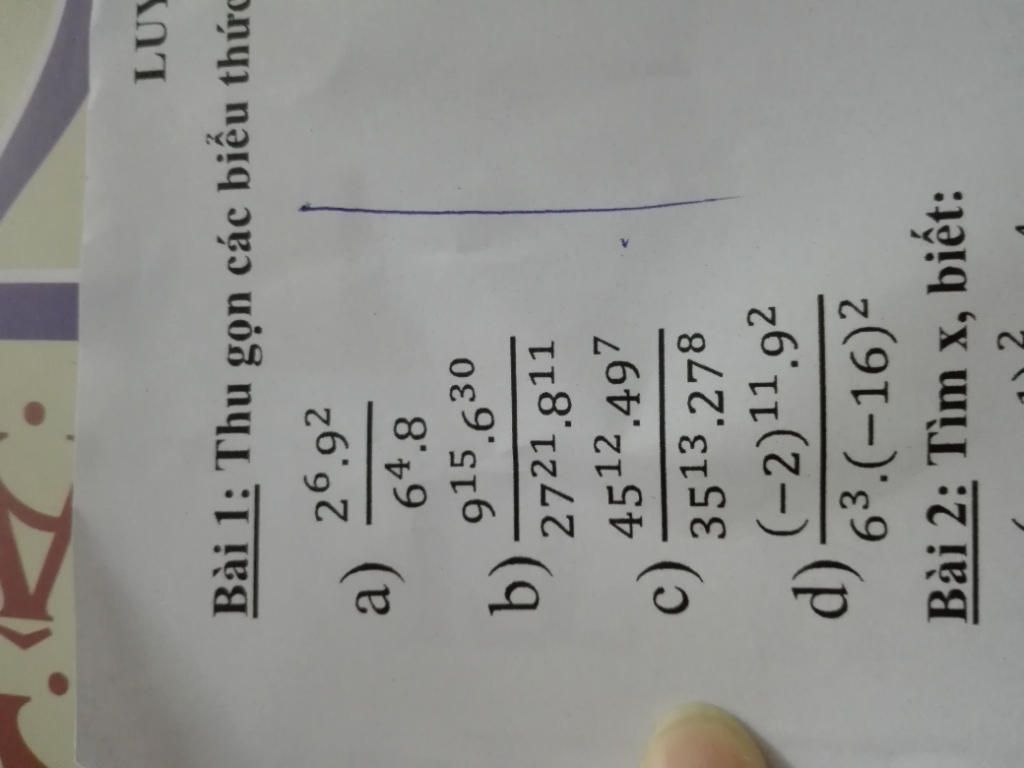 LUY
Bài 1: Thu gọn các biểu thức
a) \frac{2^6.9^2}{6^4.8}
b) \frac{9^{15}.6^{30}}{27^{21}.8^{11}}
c) \frac{45^{12}.49^7}{35^{13}.27^8}
d) \frac{(-2)^{11}.9^2}{6^3.(-16)^2}
Bài 2: Tìm x, biết: